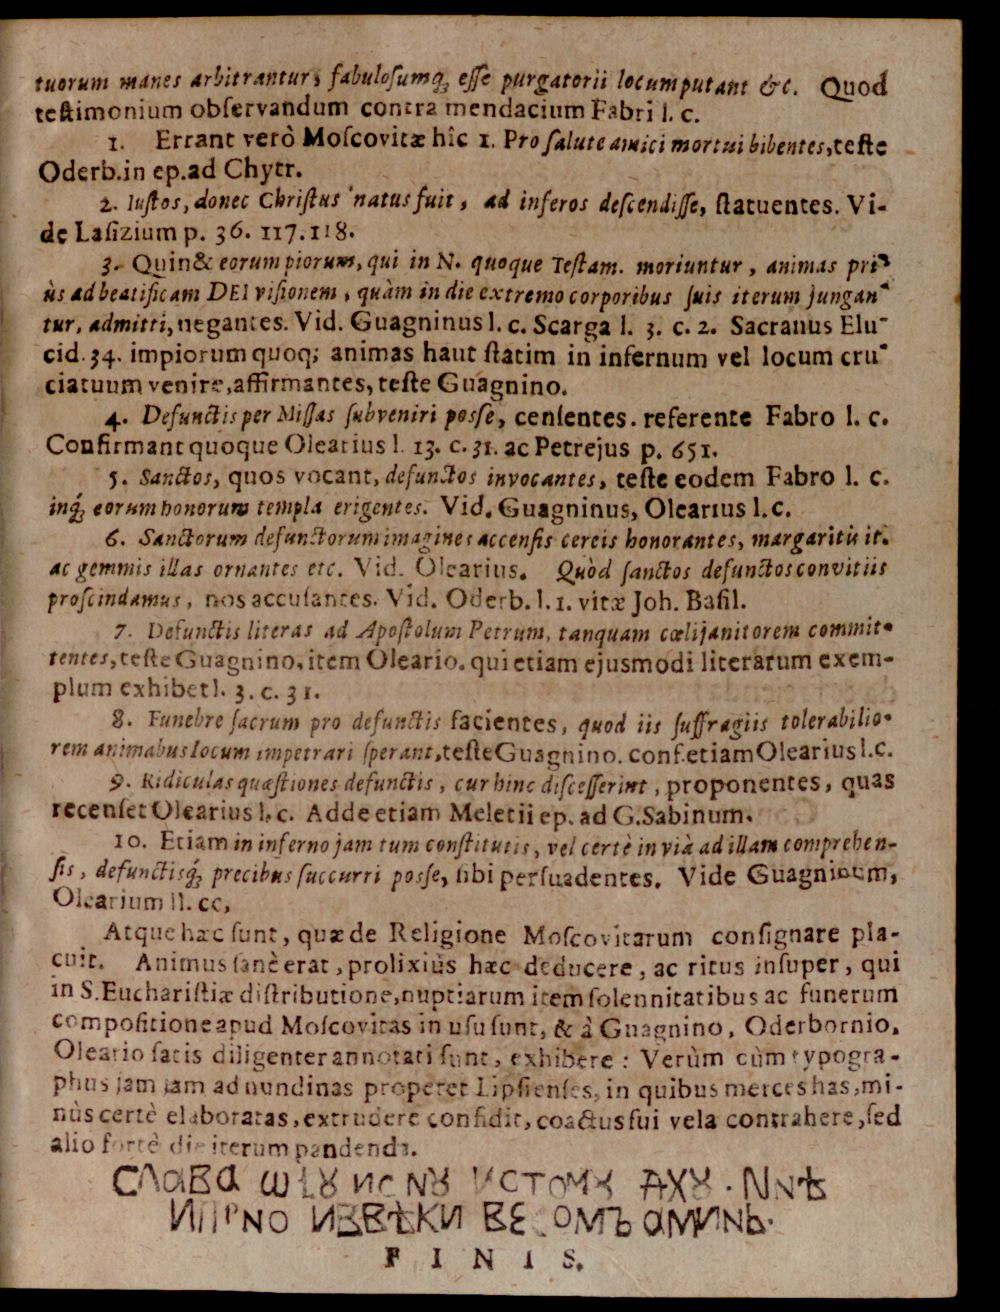 tuorum manes arbitrantur, fabulosumq; esse purgatorii locum putant &c. Quod
testimonium observandum contra mendacium Fabri l. c.
1. Errant verò Moscovitæ hîc 1. Pro salute amici mortui bibentes, teste
Oderb. in ep. ad Chytr.
2. Iustos, donec Christus natus fuit, ad inferos descendisse, statuentes. Vi-
de Lasizium p. 36. 117. 118.
3. Quin & eorum piorum, qui in N. quoque Testam. moriuntur, animas pri-
ùs ad beatificam DEI visionem, quàm in die extremo corporibus suis iterum jungan-
tur, admitti, negantes. Vid. Guagninus l. c. Scarga l. 3. c. 2. Sacranus Elu-
cid. 34. impiorum quoq; animas haut statim in infernum vel locum cru-
ciatuum venire, affirmantes, teste Guagnino.
4. Defunctis per Missas subveniri posse, censentes. referente Fabro l. c.
Confirmant quoque Olearius l. 13. c. 31. ac Petrejus p. 651.
5. Sanctos, quos vocant, defunctos invocantes, teste eodem Fabro l. c.
inq; eorum honorum templa erigentes. Vid. Guagninus, Olearius l. c.
6. Sanctorum defunctorum imagines accensis cereis honorantes, margaritis it.
ac gemmis illas ornantes etc. Vid. Olearius. Quòd sanctos defunctos convitiis
proscindamus, nos accusantes. Vid. Oderb. l. 1. vitæ Joh. Basil.
7. Defunctis literas ad Apostolum Petrum, tanquam cœli janitorem commit-
tentes, teste Guagnino, item Oleario. qui etiam ejusmodi literarum exem-
plum exhibet l. 3. c. 31.
8. Funebre sacrum pro defunctis facientes, quod iis suffragiis tolerabilio-
rem animabus locum impetrari sperant, teste Guagnino. conf. etiam Olearius l. c.
9. Ridiculas quæstiones defunctis, cur hinc discesserint, proponentes, quas
recenset Olearius l. c. Adde etiam Meletii ep. ad G. Sabinum.
10. Etiam in inferno jam tum constitutis, vel certè in viâ ad illam comprehen-
sis, defunctisq; precibus succurri posse, sibi persuadentes. Vide Guagninum,
Olearium ll. cc,
Atque hæc sunt, quæ de Religione Moscovitarum consignare pla-
cuit. Animus sanè erat, prolixiùs hæc deducere, ac ritus insuper, qui
in S. Eucharistiæ distributione, nuptiarum item solennitatibus ac funerum
compositione apud Moscovitas in usu sunt, & à Guagnino, Oderbornio,
Oleario satis diligenter annotati sunt, exhibere: Verùm cùm typogra-
phus jam jam ad nundinas properet Lipsienses, in quibus merces has, mi-
nùs certè elaboratas, extrudere confidit, coactus fui vela contrahere, sed
alio fortè die iterum pandenda.
СЛАВА
АМИНЬ.
FINIS.